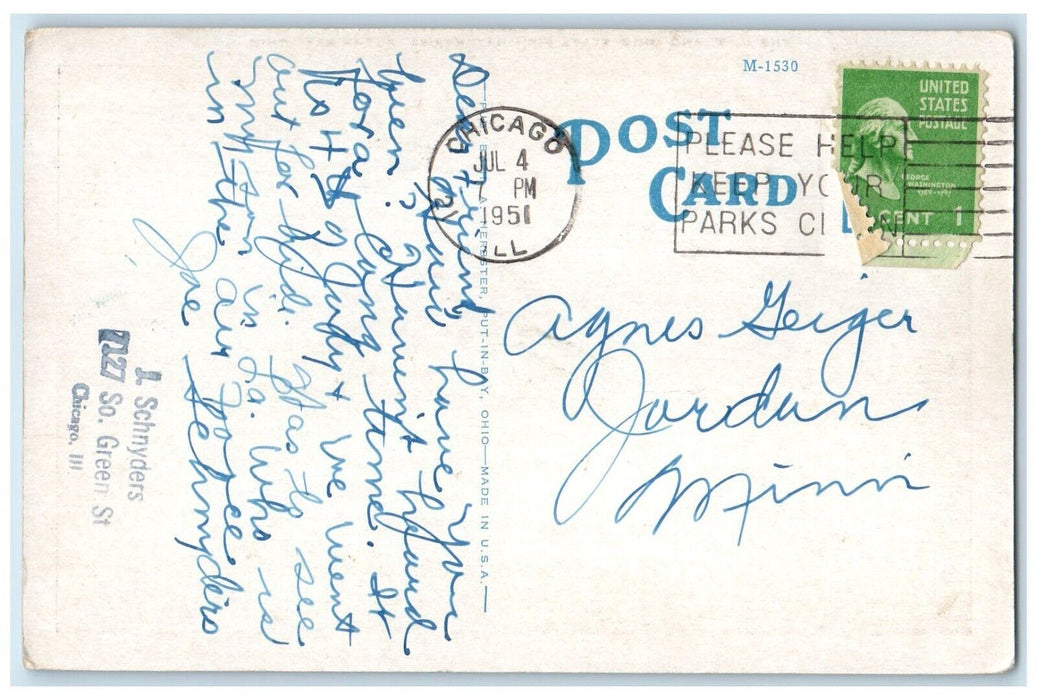 M-1530
POST
CARD
CHICAGO
JUL 4
PM
1951
ILL
PLEASE HELP
KEEP YOUR
PARKS CLEAN
UNITED
STATES
POSTAGE
GEORGE
WASHINGTON
CENT 1
Agnes Geiger
Jordan
Minn
Dear Friend
How have you
been? Havint heard
for a long time. It
is Hot July 4 We went
out for a ride. Has to see
my son in La. Who is
in the air Force
Joe Schnyders
PUT-IN-BAY, OHIO—MADE IN U.S.A.
J. Schnyders
7127 So. Green St
Chicago, Ill